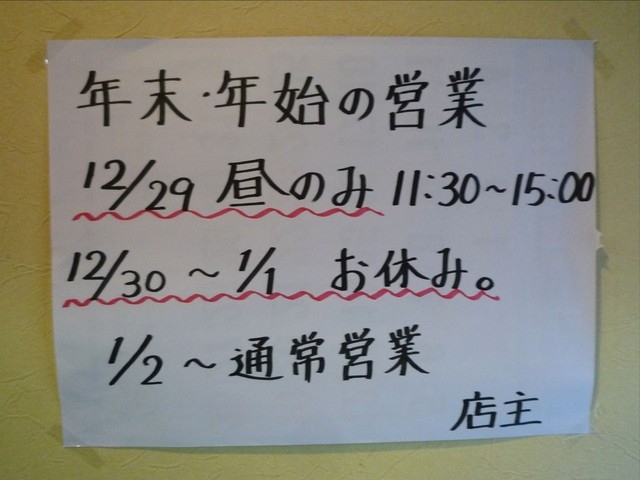 年末・年始の営業
12/29 昼のみ 11:30~15:00
12/30 ~ 1/1 お休み。
1/2 ~ 通常営業
店主